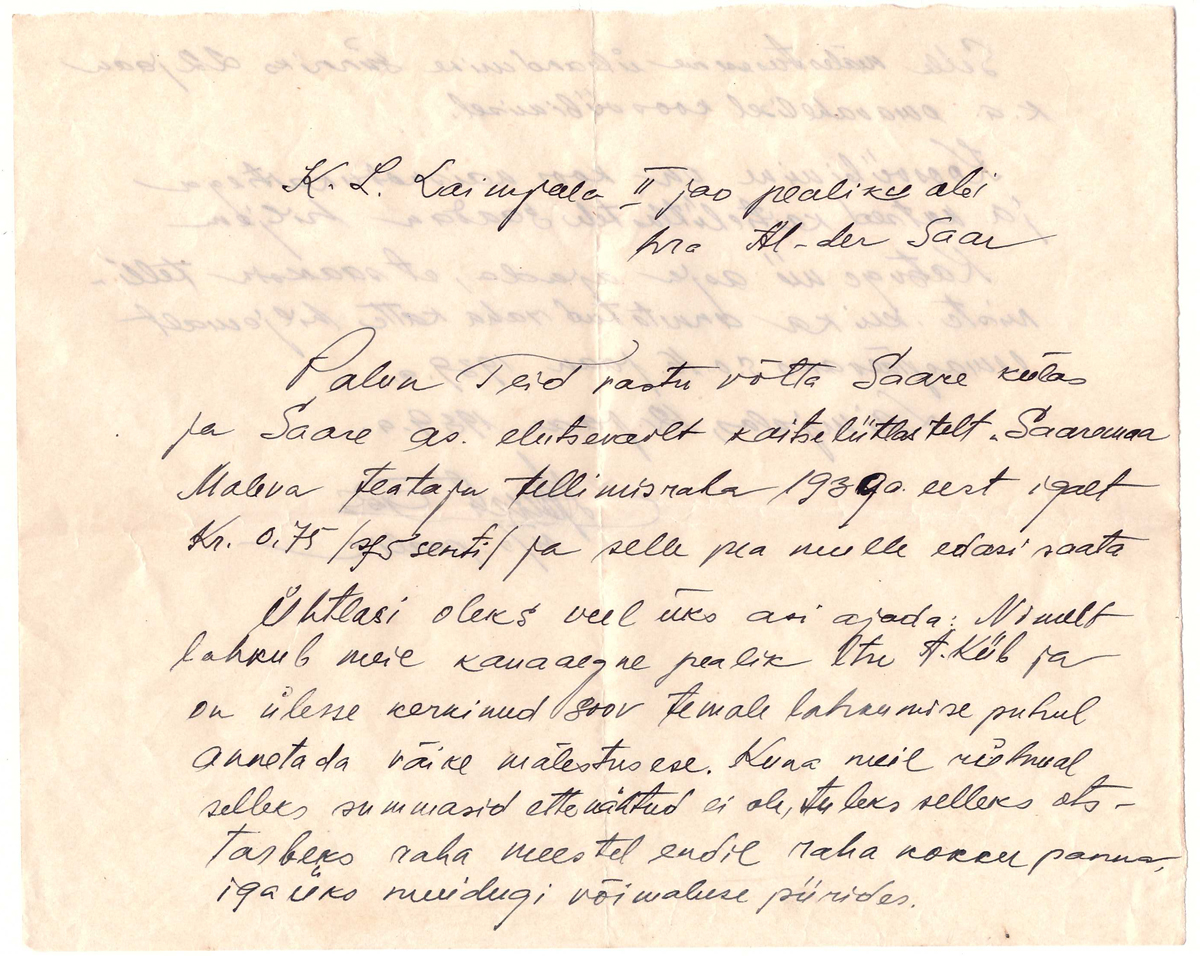 K. L. Laimjala II jao pealiku abi
hra Al-der Saar
Palun Teid vastu võtta Saare külas
ja Saare as. elutsevailt kaitseliitlastelt "Saaremaa
Maleva Teataja tellimisraha 1939a. eest igalt
Kr. 0,75 /75 senti/ ja selle pea meelle edasi saata
Ühtlasi oleks veel üks asi ajada: Nimelt
lahkub meil kauaaegne pealik ltn A. Kiib ja
on ülesse kerkinud soov temale lahkumise puhul
annetada väike mälestusese. Kuna meil rühmal
selleks summasid ettenähtud ei ole, tuleks selleks ots-
tarbeks raha meestel endil raha kokku panna,
igaüks muidugi võimaluse piirides.